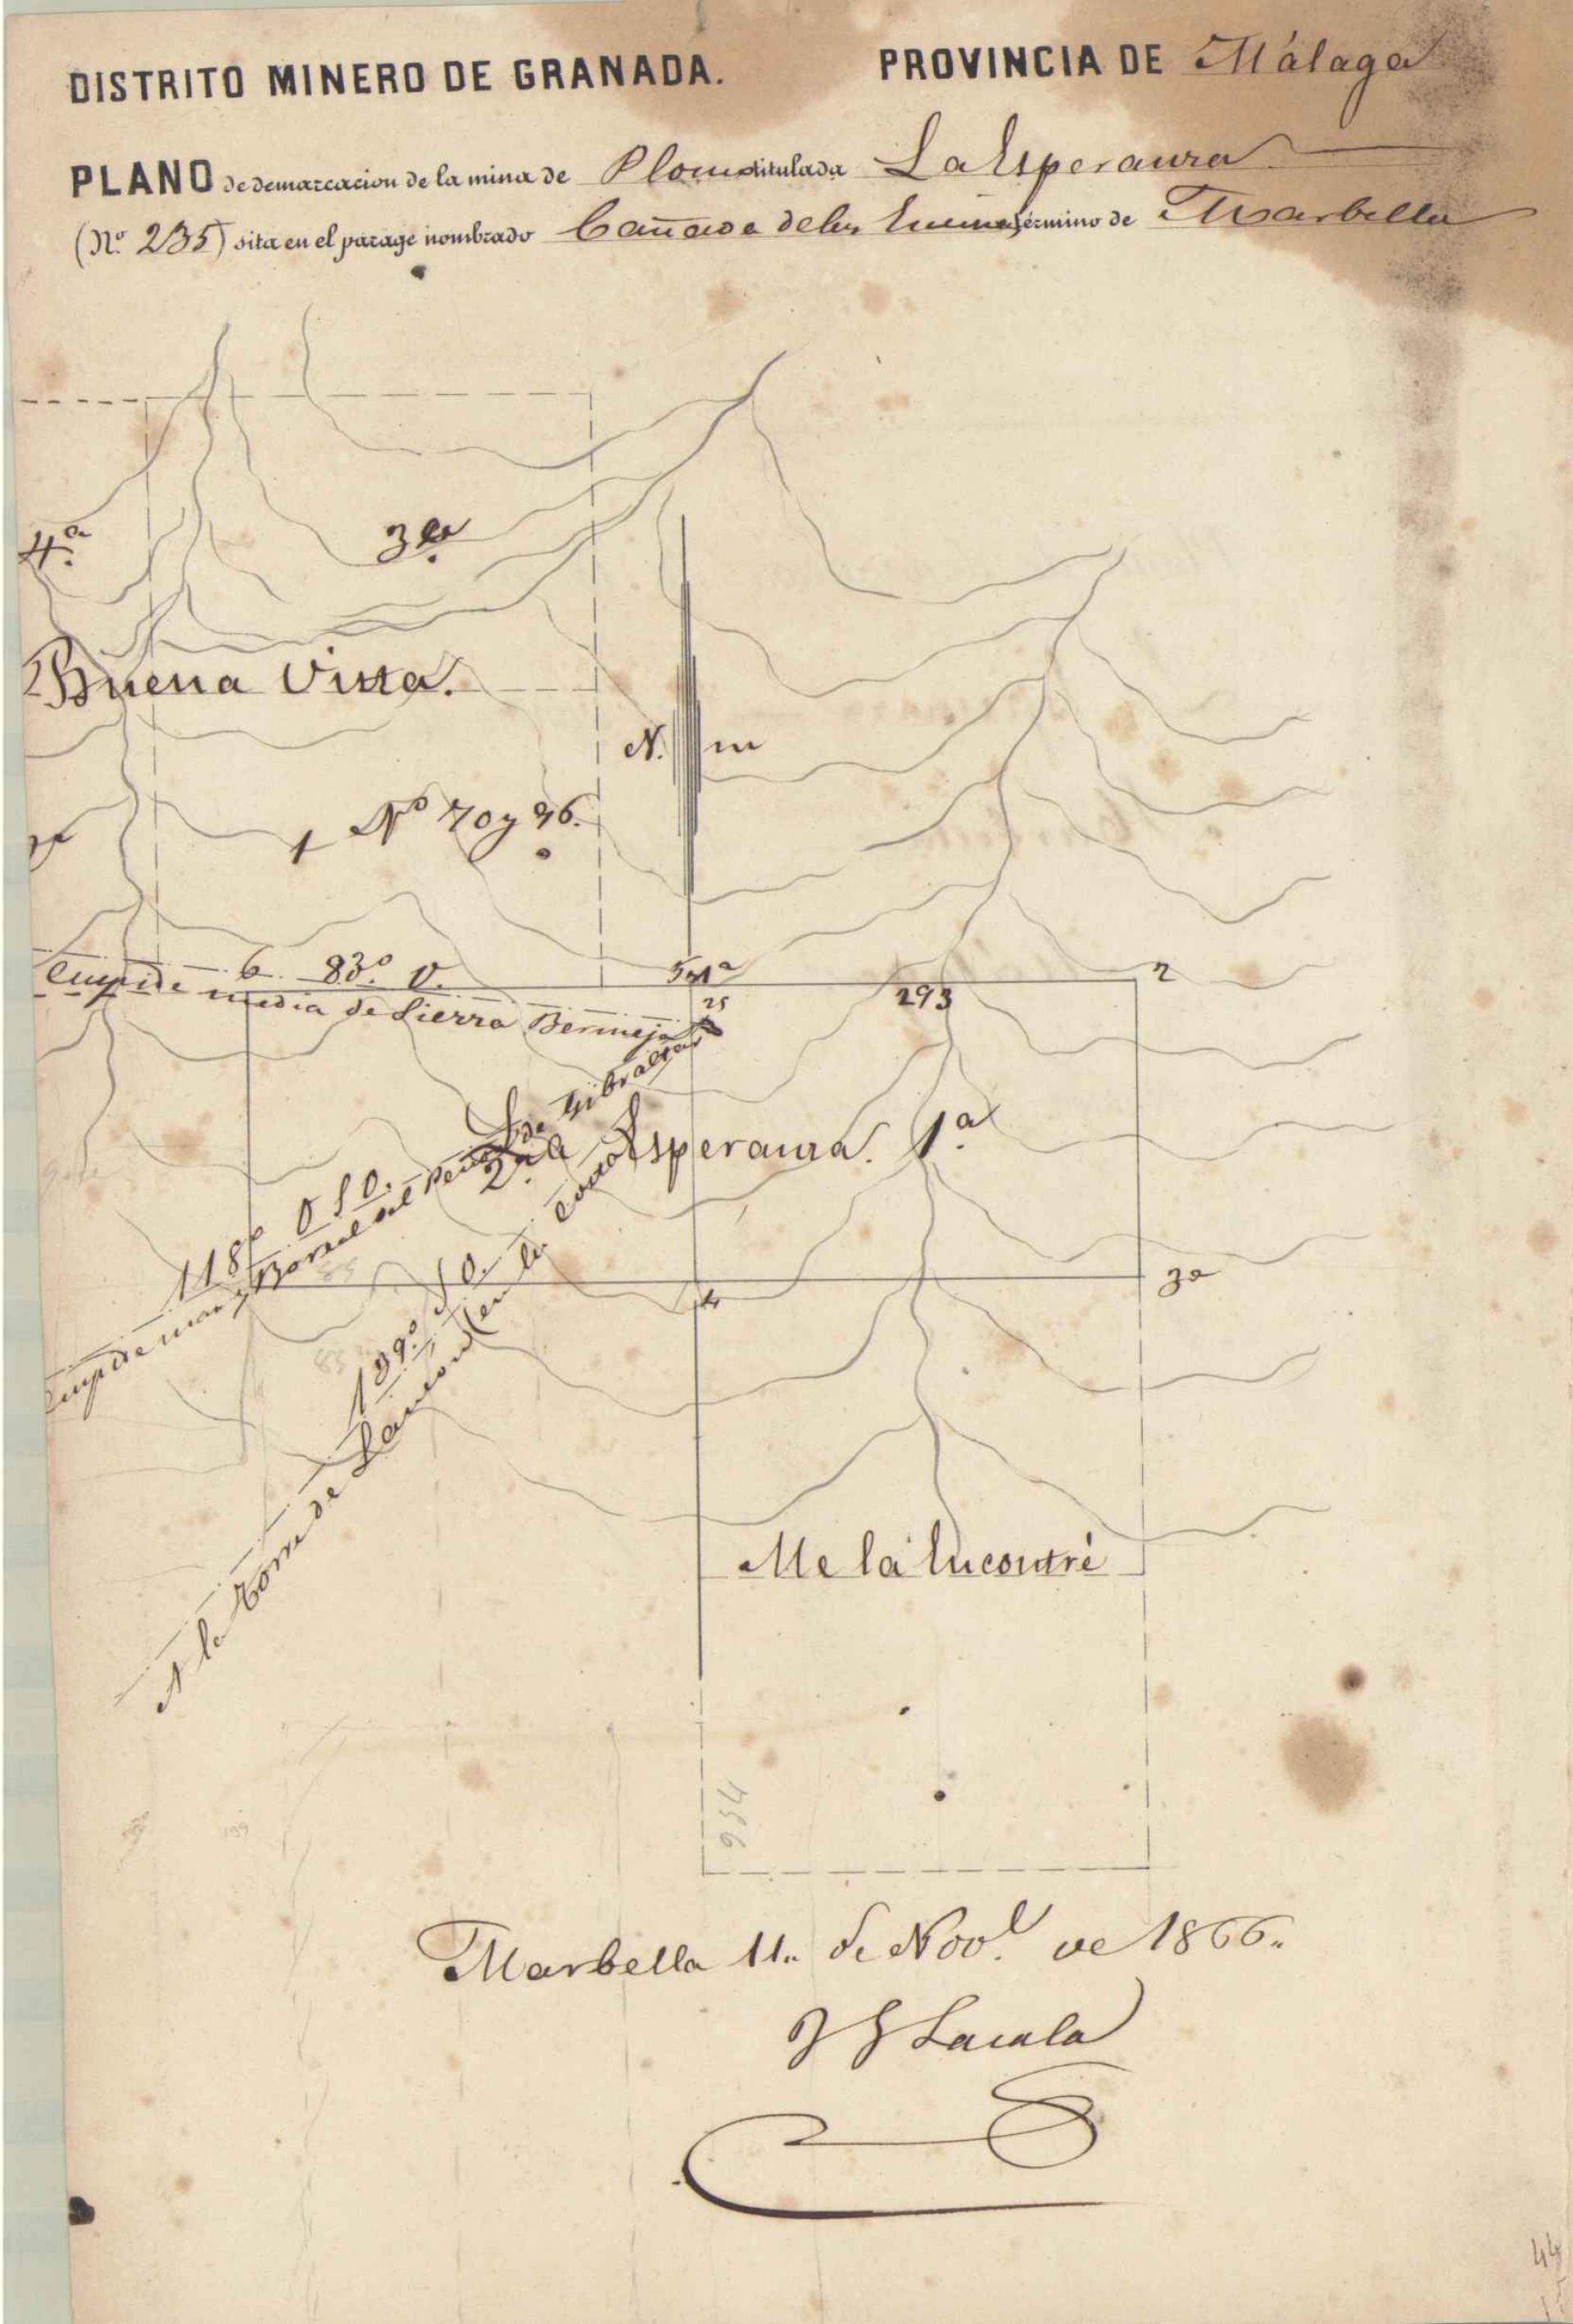 DISTRITO MINERO DE GRANADA. PROVINCIA DE Málaga
PLANO de demarcacion de la mina de Plomo titulada La Esperanza
(Nº 235) sita en el parage nombrado Cañada de las Encinas término de Marbella
4.ª
3.ª
Buena Vista.
N. m
1 Nº 70 y 96.
6 83.º O. 5 y 1ª 2
Cuspide media de Sierra Bermeja
25
293
La Esperanza. 1.ª
2.ª
118º O S O.
y Boreal del Peñon de Gibraltar
3ª
4
139.º S O.
A la Torre de Lancon (en la Costa)
Me la Encontré
934
Marbella 11.. de Nov.e de 1866..
J G Lasala
44